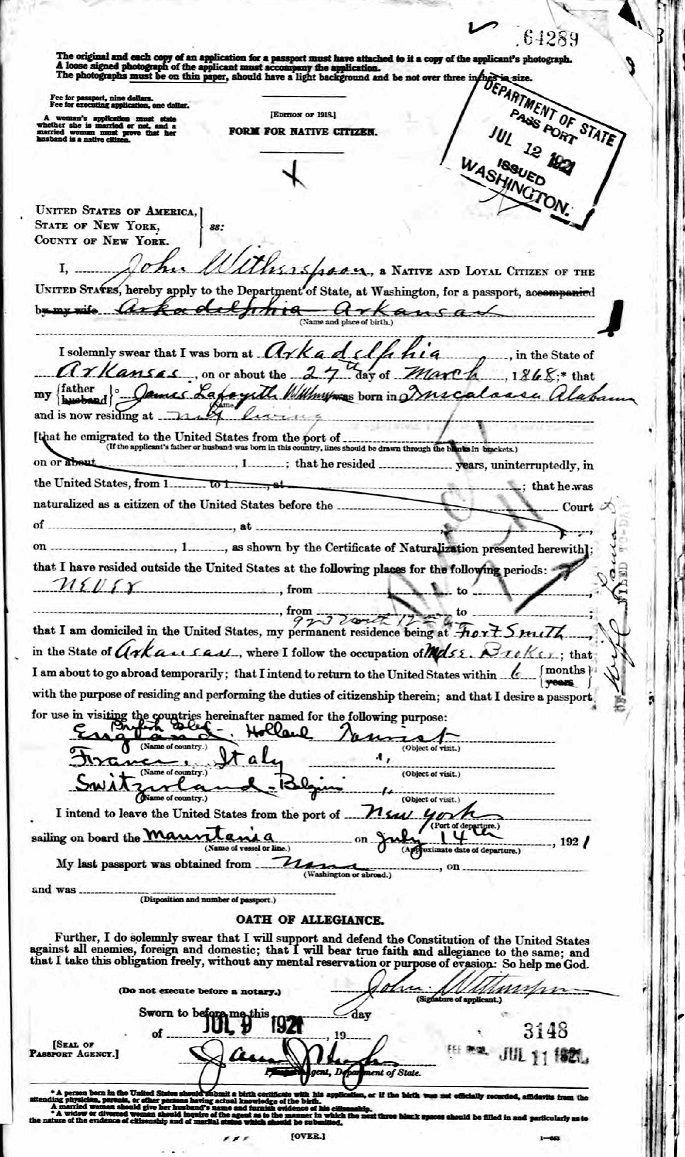 64289
The original and each copy of an application for a passport must have attached to it a copy of the applicant's photograph.
A loose signed photograph of the applicant must accompany the application.
The photographs must be on thin paper, should have a light background and be not over three inches in size.
Fee for passport, nine dollars.
Fee for executing application, one dollar.
A woman's application must state
whether she is married or not, and a
married woman must prove that her
husband is a native citizen.
[EDITION OF 1918.]
FORM FOR NATIVE CITIZEN.
DEPARTMENT OF STATE
PASSPORT
JUL 12 1921
ISSUED
WASHINGTON.
UNITED STATES OF AMERICA,
STATE OF NEW YORK,
COUNTY OF NEW YORK.
ss:
I, John Witherspoon, a NATIVE AND LOYAL CITIZEN OF THE
UNITED STATES, hereby apply to the Department of State, at Washington, for a passport, accompanied
by my wife Arkadelphia Arkansas
(Name and place of birth.)
I solemnly swear that I was born at Arkadelphia, in the State of
Arkansas, on or about the 27th day of March, 1868;* that
my {father husband}° James Lafayith was born in Tuscaloosa Alabama
(Name)
and is now residing at not living
[that he emigrated to the United States from the port of
(If the applicant's father or husband was born in this country, lines should be drawn through the blanks in brackets.)
on or about, 1; that he resided years, uninterruptedly, in
the United States, from 1 to 1, at; that he was
naturalized as a citizen of the United States before the Court
of, at
on, 1, as shown by the Certificate of Naturalization presented herewith];
that I have resided outside the United States at the following places for the following periods:
never, from to
, from to
923 North 12th
that I am domiciled in the United States, my permanent residence being at Fort Smith,
in the State of Arkansas, where I follow the occupation of Mdse. Broker; that
I am about to go abroad temporarily; that I intend to return to the United States within 6 {months years}
with the purpose of residing and performing the duties of citizenship therein; and that I desire a passport
for use in visiting the countries hereinafter named for the following purpose:
British Isles
England. Holland Tourist
(Name of country.) (Object of visit.)
France. Italy "
(Name of country.) (Object of visit.)
Switzerland - Belgium "
(Name of country.) (Object of visit.)
I intend to leave the United States from the port of New York
(Port of departure.)
sailing on board the Mauretania on July 14th, 1921
(Name of vessel or line.) (Approximate date of departure.)
My last passport was obtained from None, on
(Washington or abroad.)
and was
(Disposition and number of passport.)
OATH OF ALLEGIANCE.
Further, I do solemnly swear that I will support and defend the Constitution of the United States
against all enemies, foreign and domestic; that I will bear true faith and allegiance to the same; and
that I take this obligation freely, without any mental reservation or purpose of evasion: So help me God.
John Witherspoon
(Do not execute before a notary.) (Signature of applicant.)
Sworn to before me this day
of JUL 9 1921, 19
3148
JUL 11 1921
[SEAL OF
PASSPORT AGENCY.]
Agent, Department of State.
* A person born in the United States should submit a birth certificate with his application, or if the birth was not officially recorded, affidavits from the
attending physician, parents, or other persons having actual knowledge of the birth.
A married woman should give her husband's name and furnish evidence of his citizenship.
° A widow or divorced woman should inquire of the agent as to the manner in which the next three blank spaces should be filled in and particularly as to
the nature of the evidence of citizenship and of marital status which should be submitted.
[OVER.]